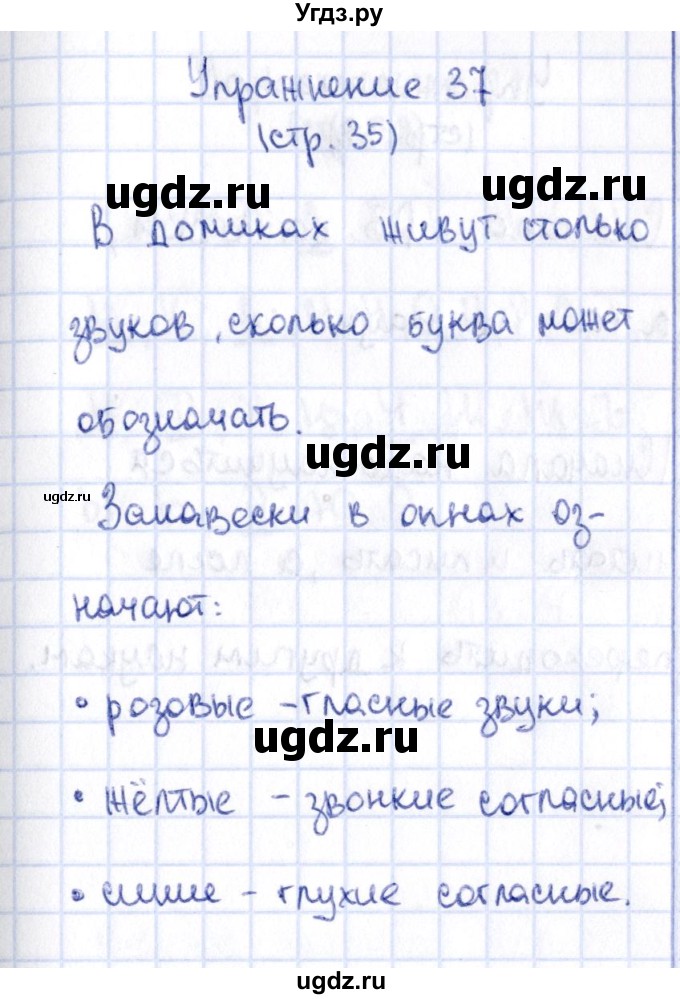 Угдз.ру
Упражнение 37
(стр. 35)
ugdz.ru
ugdz.ru
В домиках живут столько
звуков, сколько буква может
обозначать.
ugdz.ru
ugdz.ru
Занавески в окнах оз-
начают:
• розовые – гласные звуки;
ugdz.ru
• жёлтые – звонкие согласные;
• синие – глухие согласные.
ugdz.ru